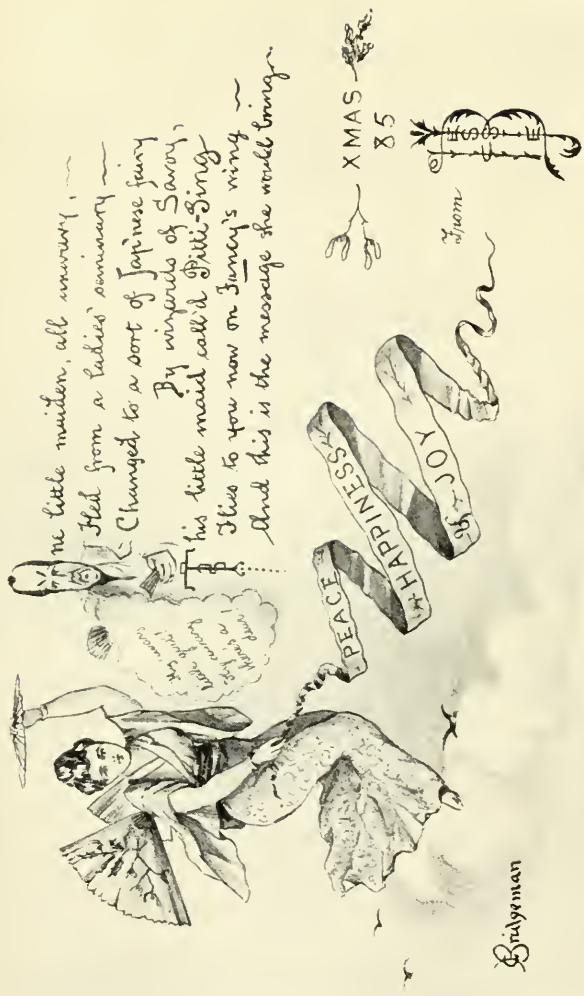 One little maiden, all unwary, —
Fled from a ladies' seminary —
Changed to a sort of Jap'nese fairy
By wizards of Savoy,
This little maid call'd Pitti-Sing
Flies to you now on Fancy's wing —
And this is the message she would bring.
PEACE
HAPPINESS
& JOY
XMAS
85
From
Bridgeman